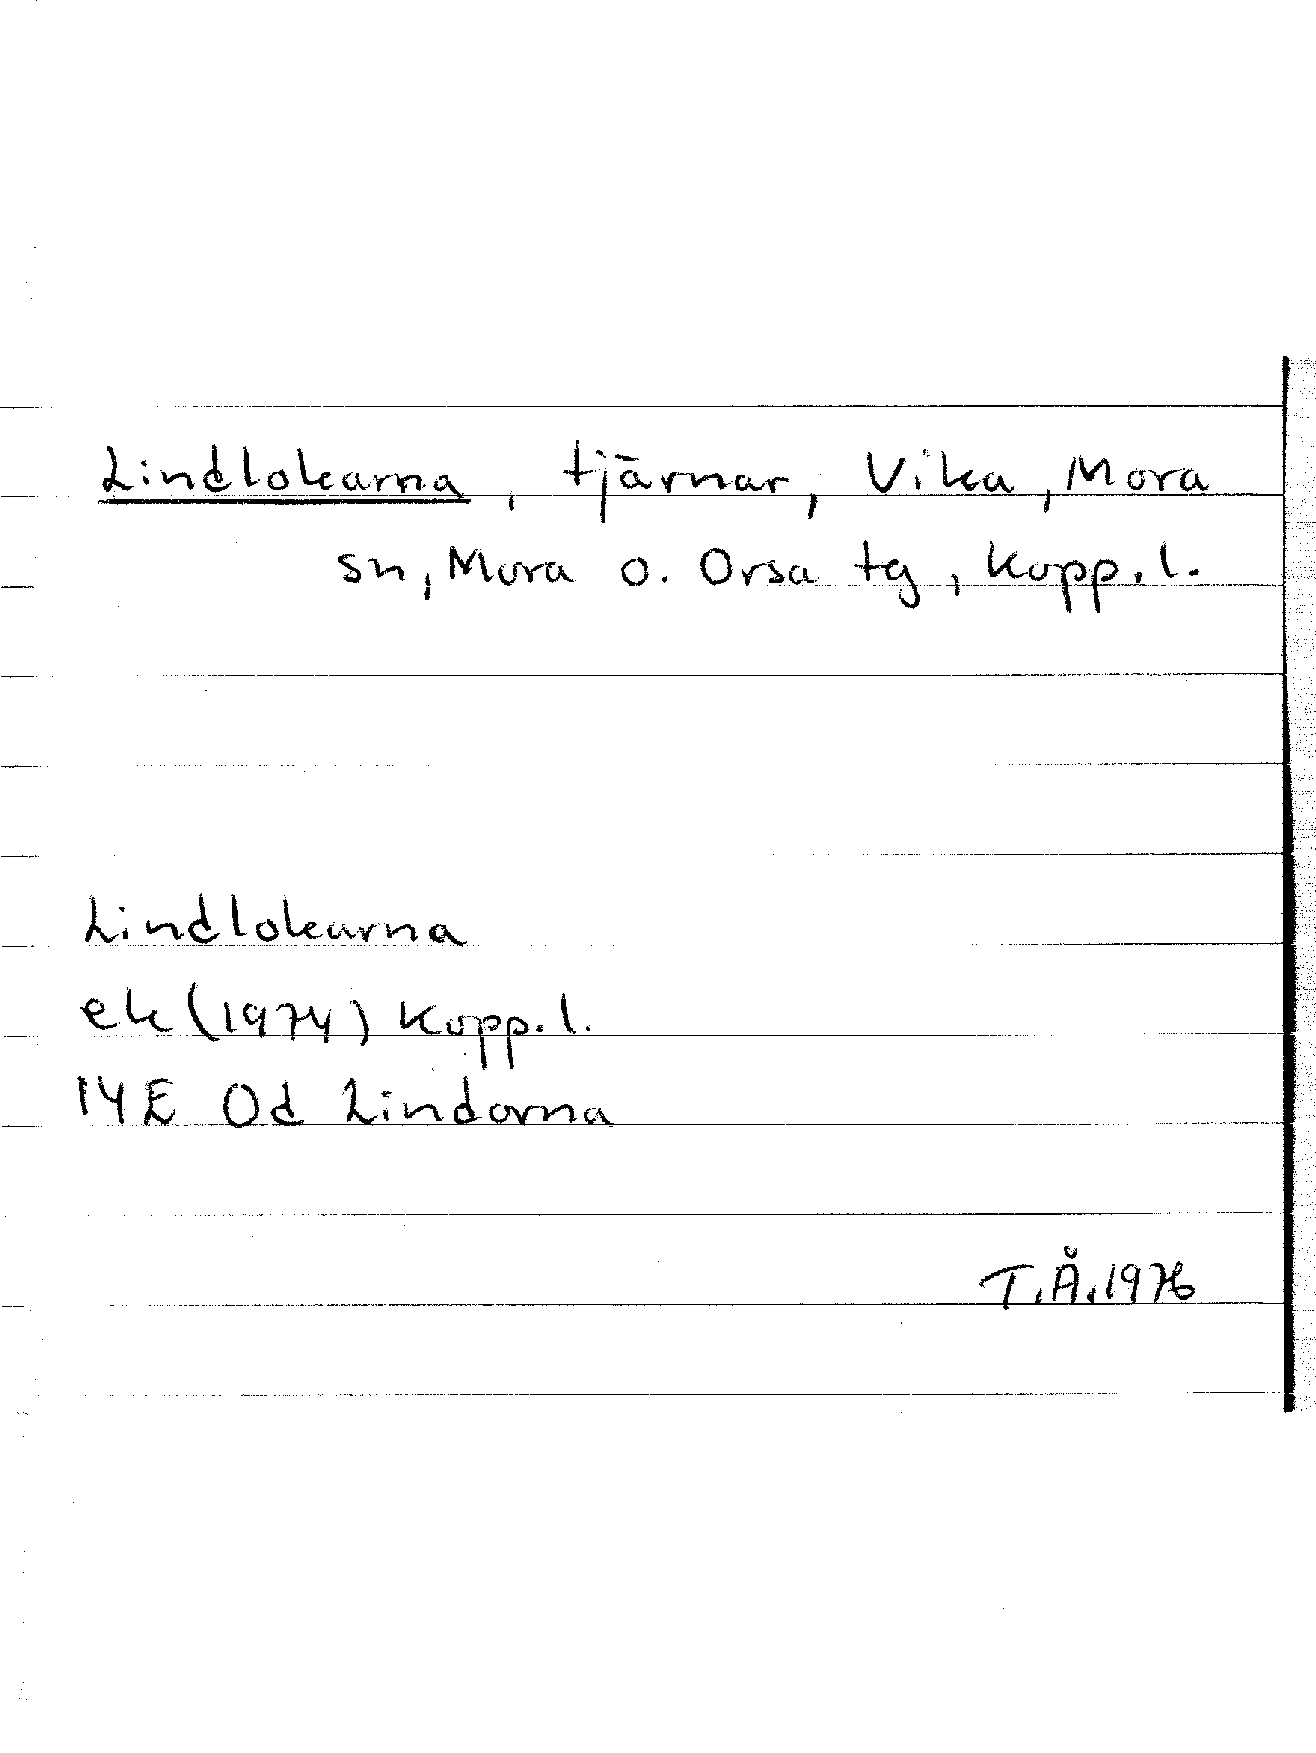 Lindlokarna, tjärnar, Vika, Mora
sn, Mora o. Orsa tg, Kopp. l.
Lindlokarna
ek (1974) Kopp. l.
14E 0d Lindorna
T.Å. 1976